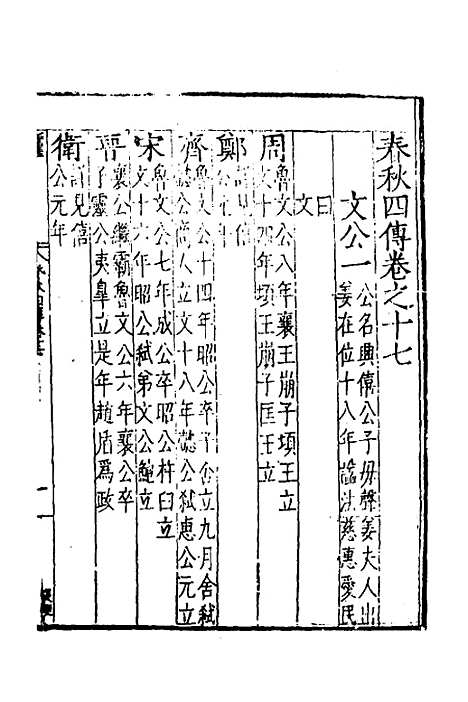 春秋四傳卷之十七
文公一
公名興僖公子母聲姜夫人出
姜在位十八年諡法慈惠愛民
曰
文
周
魯文公八年襄王崩子頃王立
文十四年頃王崩子匡王立
鄭
詳見僖
公元年
齊
魯文公十四年昭公卒子舍立九月舍弑
懿公商人立文十八年懿公弑惠公元立
宋
魯文公七年成公卒昭公杵臼立
文十六年昭公弑弟文公鮑立
晉
襄公繼霸魯文公六年襄公卒
子靈公夷皐立是年趙盾爲政
衛
詳見僖
公元年